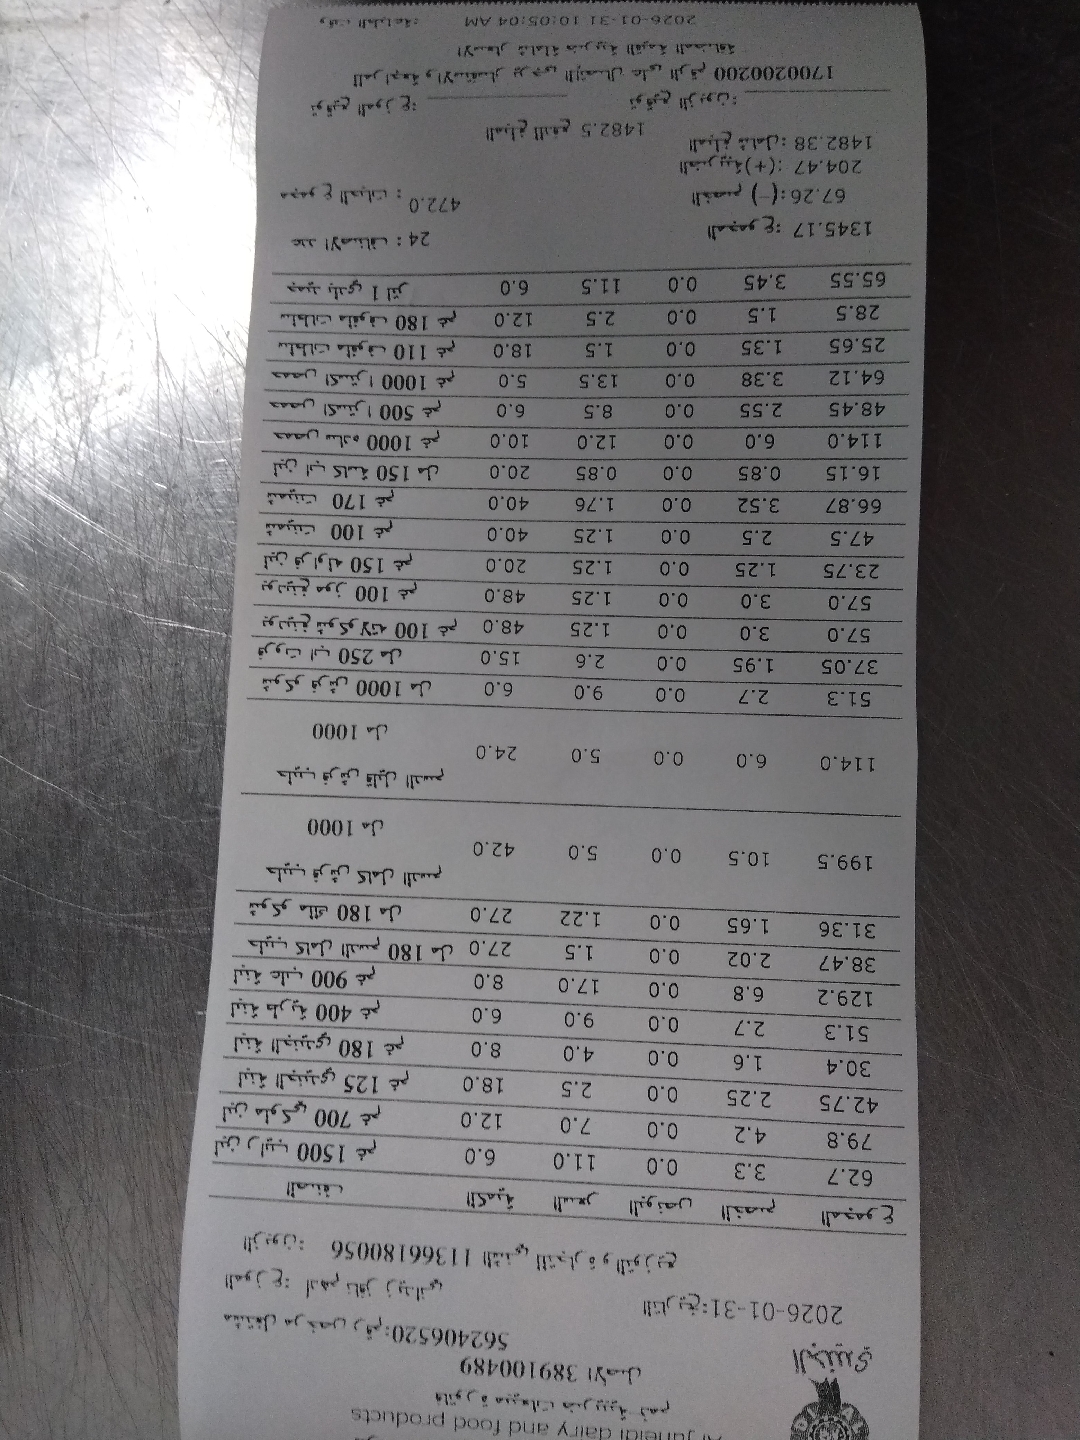 Al Juneidi dairy and food products
فاتورة مبيعات ضريبية رقم
389100489 الأصل
الجنيدي
مشتغل مرخص رقم: 562406520
التاريخ: 2026-01-31
الموزع: ادهم نافز زيداني
الزبون: 11366180056 التقني للتجارة والتوزيع
الصنف الكمية السعر البونص الخصم المجموع
لبن رايب 1500 غم 6.0 11.0 0.0 3.3 62.7
لبن ملوكي 700 غم 12.0 7.0 0.0 4.2 79.8
لبنة الجنيدي 125 غم 18.0 2.5 0.0 2.25 42.75
لبنة الجنيدي 180 غم 8.0 4.0 0.0 1.6 30.4
لبنة طرية 400 غم 6.0 9.0 0.0 2.7 51.3
لبنة علب 900 غم 8.0 17.0 0.0 6.8 129.2
حليب كامل الدسم 180 مل 27.0 1.5 0.0 2.02 38.47
شوكو ملك 180 مل 27.0 1.22 0.0 1.65 31.36
حليب فرش كامل الدسم 1000 مل 42.0 5.0 0.0 10.5 199.5
حليب فرش قليل الدسم 1000 مل 24.0 5.0 0.0 6.0 114.0
شوكو فرش 1000 مل 6.0 9.0 0.0 2.7 51.3
فروت اب 250 مل 15.0 2.6 0.0 1.95 37.05
بودينغ شوكولاته 100 غم 48.0 1.25 0.0 3.0 57.0
بودينغ موز 100 غم 48.0 1.25 0.0 3.0 57.0
لبن فراوله 150 غم 20.0 1.25 0.0 1.25 23.75
شمينت 100 غم 40.0 1.25 0.0 2.5 47.5
شمينت 170 غم 40.0 1.76 0.0 3.52 66.87
لبن اب كاسة 150 مل 20.0 0.85 0.0 0.85 16.15
حمص ساده 1000 غم 10.0 12.0 0.0 6.0 114.0
حمص اكسترا 500 غم 6.0 8.5 0.0 2.55 48.45
حمص اكسترا 1000 غم 5.0 13.5 0.0 3.38 64.12
سلطات ملفوف 110 غم 18.0 1.5 0.0 1.35 25.65
سلطات ملفوف 180 غم 12.0 2.5 0.0 1.5 28.5
جميد بلدي 1 لتر 6.0 11.5 0.0 3.45 65.55
عدد الاصناف : 24 المجموع: 1345.17
مجموع الحبات : 472.0 الخصم (-): 67.26
الضريبة(+): 204.47
المبلغ شامل: 1482.38
المبلغ للدفع 1482.5
توقيع الموزع: توقيع الزبون:
للمراجعة والاستفسار يرجى الإتصال على الرقم 1700200200
الاسعار شاملة ضريبة القيمة المضافة
وقت الطباعة: 2026-01-31 10:05:04 AM